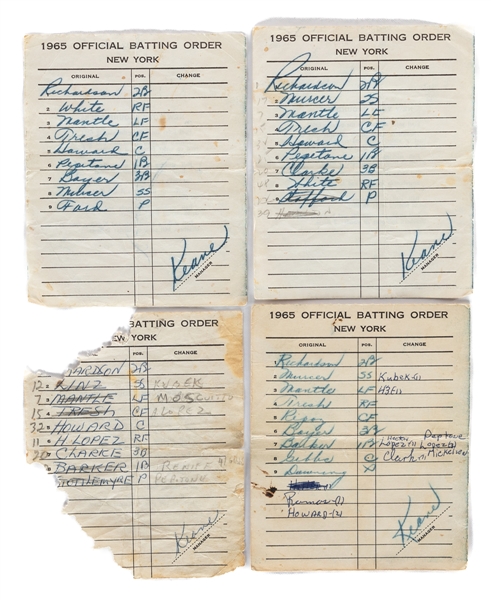 1965 OFFICIAL BATTING ORDER
NEW YORK
ORIGINAL POS. CHANGE
Richardson 2B
2 White RF
3 Mantle LF
4 Tresh CF
5 Howard C
6 Pepitone 1B
7 Boyer 3B
8 Murcer SS
9 Ford P
Keane
MANAGER
1965 OFFICIAL BATTING ORDER
NEW YORK
ORIGINAL POS. CHANGE
Richardson 2B
Murcer SS
Mantle LF
Tresh CF
Howard C
Pepitone 1B
Clarke 3B
White RF
Stafford P
Keane
MANAGER
BATTING ORDER
NEW YORK
POS. CHANGE
ARDSON 2B
12 LINZ SS KUBEK
7 MANTLE LF MOSCHITTO
15 TRESH CF LOPEZ
32 HOWARD C
11 H LOPEZ RF
20 CLARKE 3B
BARKER 1B
STOTTLEMYRE P
Keane
MANAGER
1965 OFFICIAL BATTING ORDER
NEW YORK
ORIGINAL POS. CHANGE
Richardson 2B
Murcer SS Kubek-11
Mantle LF
Tresh RF
Repoz CF
Boyer 3B
Barker 1B Lopez
Gibbs C Clark Mickelsen
Downing P
Ramos-(1)
HOWARD-(2)
Keane
MANAGER